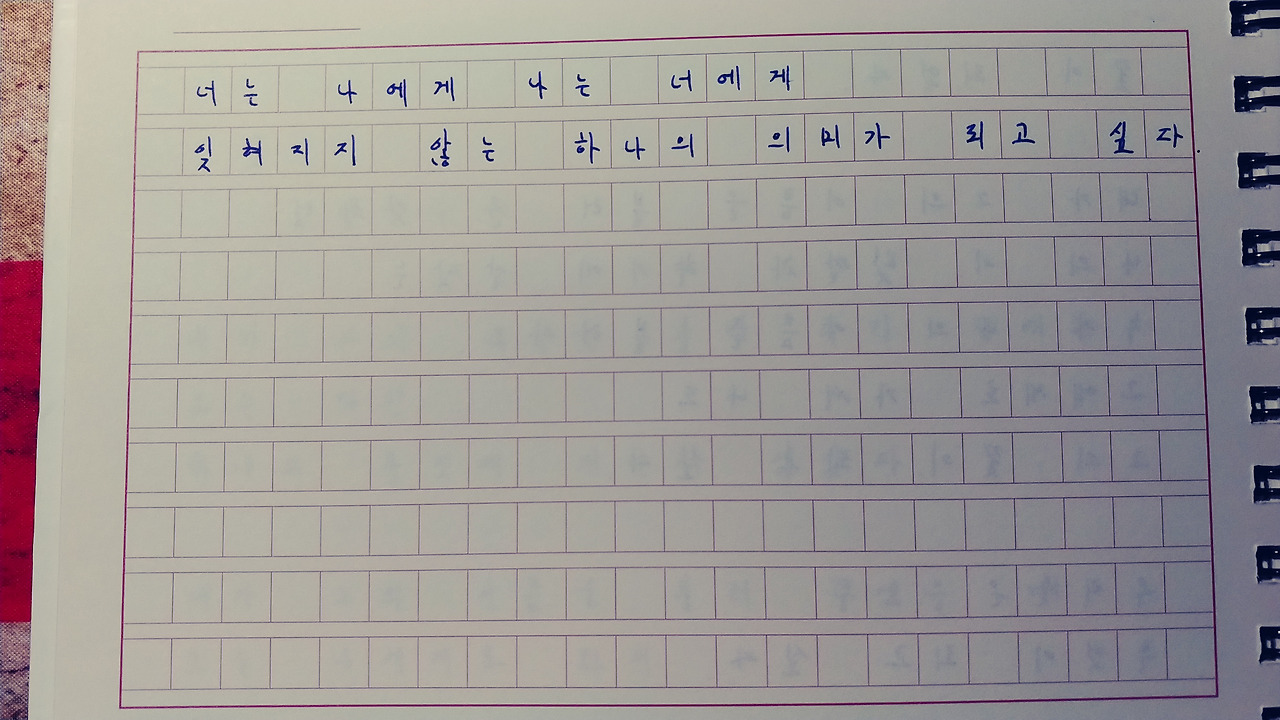 너는 나에게 나는 너에게
잊혀지지 않는 하나의 의미가 되고 싶다.